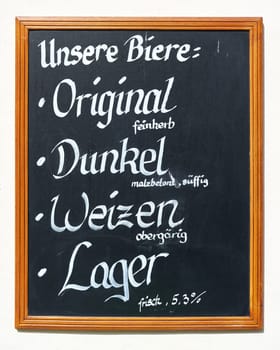 Unsere Biere:
• Original
feinherb
• Dunkel
malzbetont, süffig
• Weizen
obergärig
• Lager
frisch, 5,3%